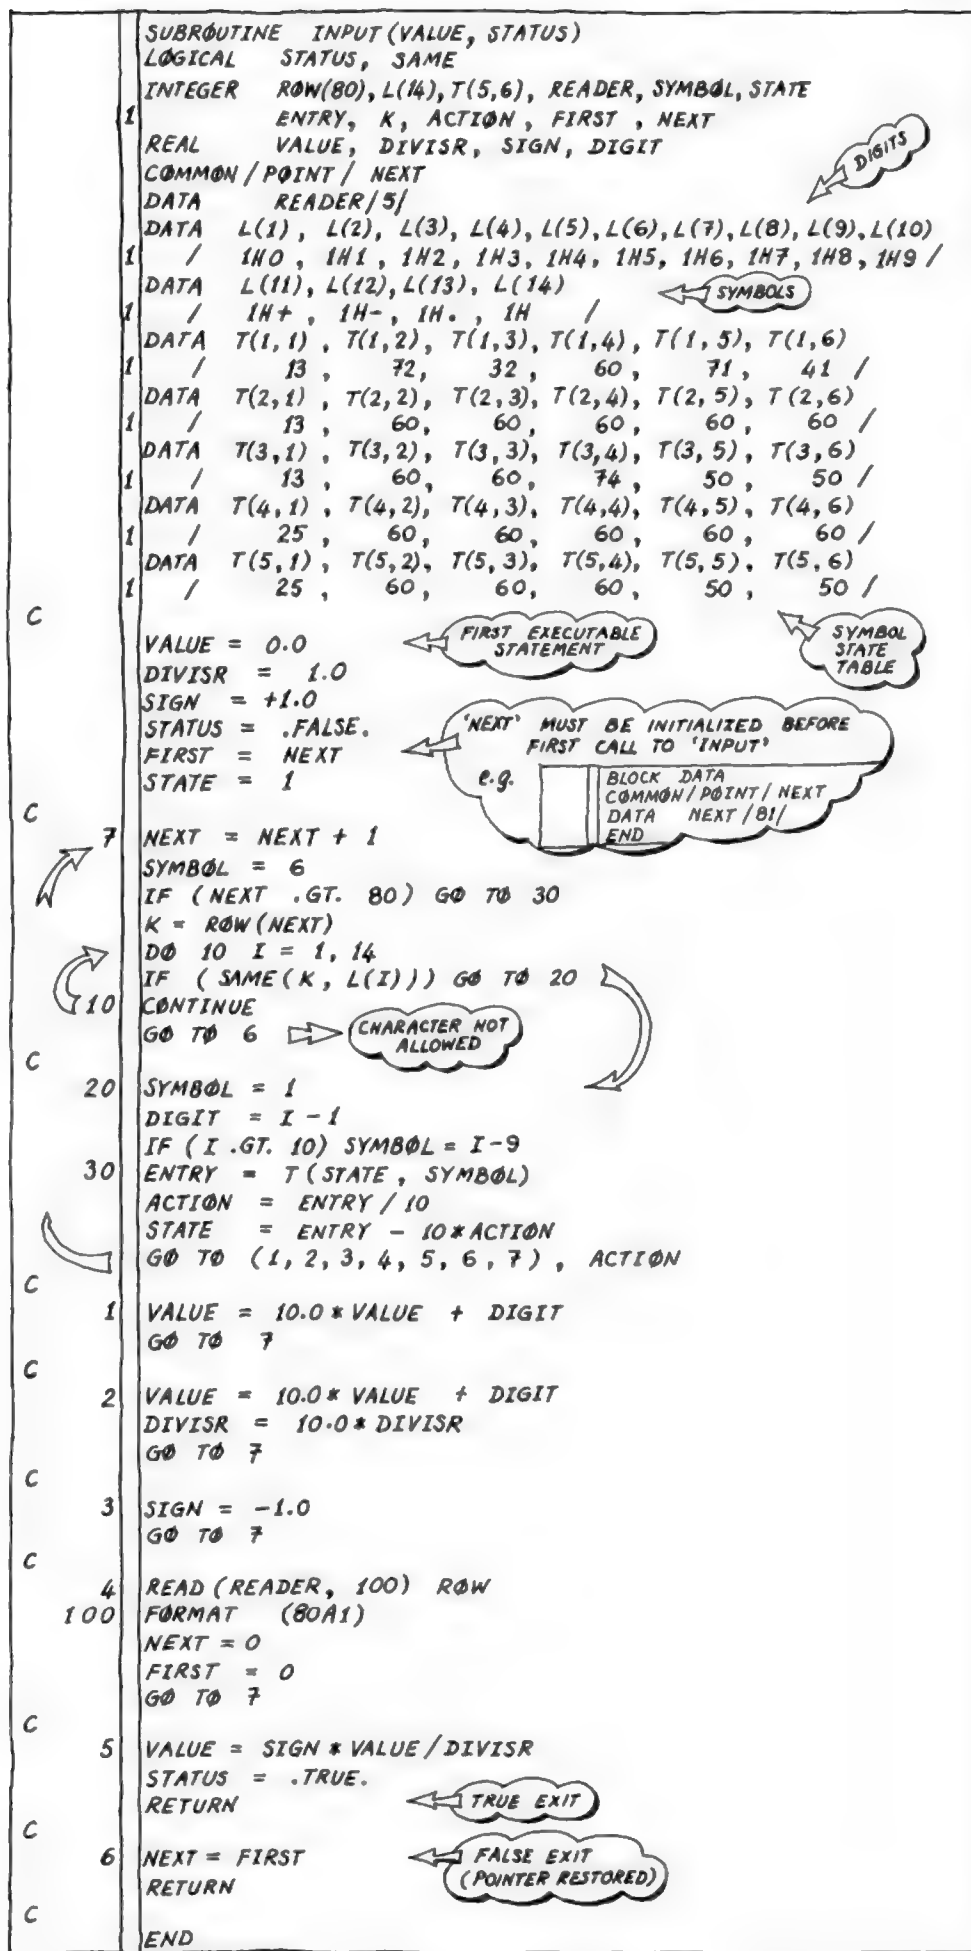 SUBRØUTINE INPUT(VALUE, STATUS)
LØGICAL STATUS, SAME
INTEGER RØW(80), L(14), T(5,6), READER, SYMBØL, STATE
1 ENTRY, K, ACTIØN, FIRST, NEXT
REAL VALUE, DIVISR, SIGN, DIGIT
CØMMØN/PØINT/ NEXT
DIGITS
DATA READER/5/
DATA L(1), L(2), L(3), L(4), L(5), L(6), L(7), L(8), L(9), L(10)
1 / 1H0, 1H1, 1H2, 1H3, 1H4, 1H5, 1H6, 1H7, 1H8, 1H9 /
DATA L(11), L(12), L(13), L(14)
SYMBOLS
1 / 1H+, 1H-, 1H., 1H /
DATA T(1,1), T(1,2), T(1,3), T(1,4), T(1,5), T(1,6)
1 / 13, 72, 32, 60, 71, 41 /
DATA T(2,1), T(2,2), T(2,3), T(2,4), T(2,5), T(2,6)
1 / 13, 60, 60, 60, 60, 60 /
DATA T(3,1), T(3,2), T(3,3), T(3,4), T(3,5), T(3,6)
1 / 13, 60, 60, 74, 50, 50 /
DATA T(4,1), T(4,2), T(4,3), T(4,4), T(4,5), T(4,6)
1 / 25, 60, 60, 60, 60, 60 /
DATA T(5,1), T(5,2), T(5,3), T(5,4), T(5,5), T(5,6)
1 / 25, 60, 60, 60, 50, 50 /
C
SYMBOL
STATE
TABLE
VALUE = 0.0
FIRST EXECUTABLE
STATEMENT
DIVISR = 1.0
SIGN = +1.0
STATUS = .FALSE.
FIRST = NEXT
STATE = 1
'NEXT' MUST BE INITIALIZED BEFORE
FIRST CALL TO 'INPUT'
e.g.
BLØCK DATA
CØMMØN/PØINT/NEXT
DATA NEXT/81/
END
C
7 NEXT = NEXT + 1
SYMBØL = 6
IF (NEXT .GT. 80) GØ TØ 30
K = RØW(NEXT)
DØ 10 I = 1, 14
IF (SAME(K, L(I))) GØ TØ 20
10 CØNTINUE
GØ TØ 6
CHARACTER NOT
ALLOWED
C
20 SYMBØL = 1
DIGIT = I - 1
IF (I .GT. 10) SYMBØL = I-9
30 ENTRY = T(STATE, SYMBØL)
ACTIØN = ENTRY / 10
STATE = ENTRY - 10*ACTIØN
GØ TØ (1, 2, 3, 4, 5, 6, 7), ACTIØN
C
1 VALUE = 10.0*VALUE + DIGIT
GØ TØ 7
C
2 VALUE = 10.0*VALUE + DIGIT
DIVISR = 10.0*DIVISR
GØ TØ 7
C
3 SIGN = -1.0
GØ TØ 7
C
4 READ(READER, 100) RØW
100 FØRMAT (80A1)
NEXT = 0
FIRST = 0
GØ TØ 7
C
5 VALUE = SIGN * VALUE/DIVISR
STATUS = .TRUE.
RETURN
TRUE EXIT
C
6 NEXT = FIRST
RETURN
FALSE EXIT
(POINTER RESTORED)
C
END